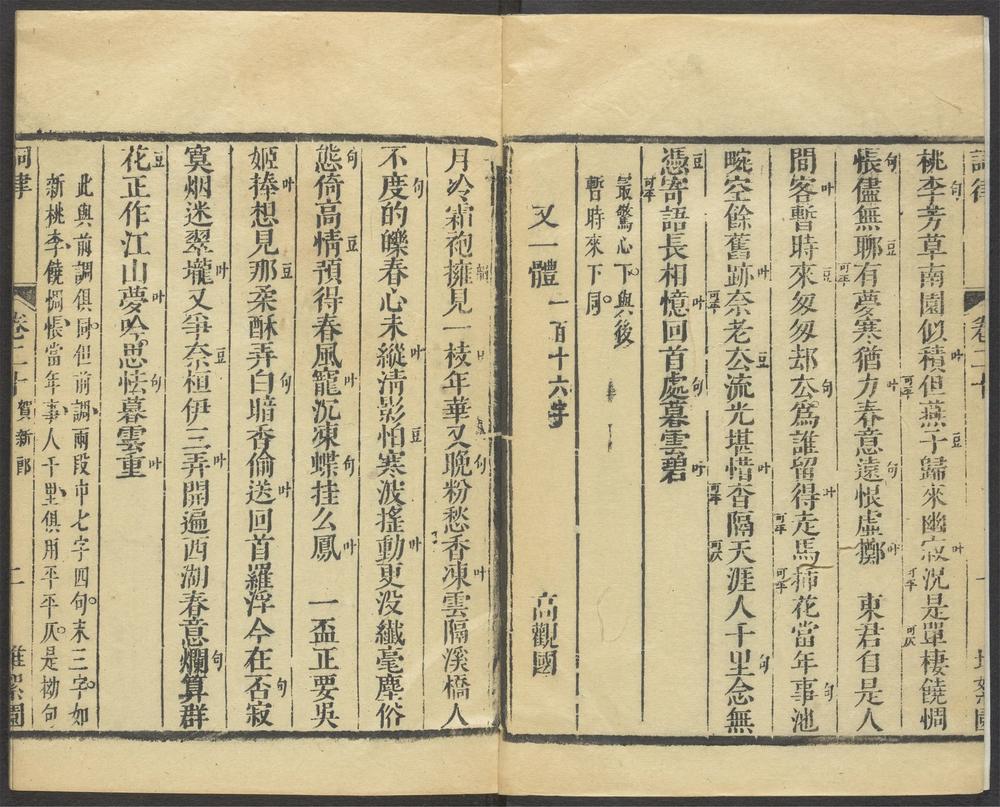 詞律 卷二十
桃李芳草南園似積但燕子歸來幽寂況是單棲饒惆
悵儘無聊有夢寒猶力春意遠恨虛擲 東君自是人
間客暫時來匆匆却去為誰留得走馬插花當年事池
畹空餘舊跡奈老去流光堪惜杳隔天涯人千里念無
憑寄語長相憶回首處暮雲碧
最驚心下與後
暫時來下同
又一體 一百十六字 高觀國
月冷霜袍擁見一枝年華又晚粉愁香凍雲隔溪橋人
不度的皪春心未縱淸影怕寒波搖動更没纖毫塵俗
態倚高情預得春風寵沉凍蝶挂么鳳 一盃正要吳
姬捧想見那柔酥弄白暗香偷送回首羅浮今在否寂
寞烟迷翠壠又爭奈桓伊三弄開遍西湖春意爛算群
花正作江山夢吟思怯暮雲重
此與前調俱同但前調兩段中七字四句末三字如
新桃李饒惆悵當年事人千里俱用平平仄是拗句
詞律 卷二十 賀新郎 二 堆絮園